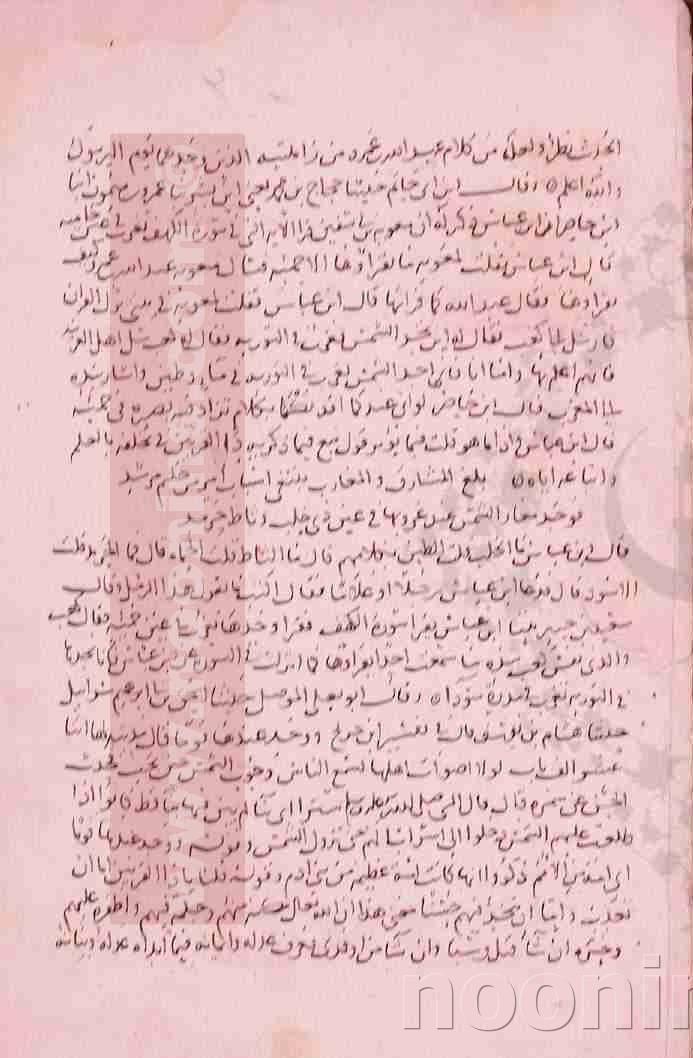 الحديث نظر ولعله من كلام عبد الله بن عمرو من زاملتيه الذين وجدهما يوم اليرموك
والله اعلم وقال ابن ابي حاتم حدثنا حجاج بن حمزة ثنا محمد يعني ابن بشر ثنا عمرو بن ميمون انبا
ابن حاضر ان ابن عباس ذكر له ان معوية بن ابي سفين قرا الاية التي في سورة الكهف تغرب في عين حامية
قال ابن عباس فقلت لمعوية ما نقراوها الا حمئة فسال معوية عبد الله بن عمرو كيف
تقراوها فقال عبد الله كما قراتها قال ابن عباس فقلت لمعوية في بيتي نزل القران
فارسل الى كعب فقال له اين تجد الشمس تغرب في التورية فقال له كعب سل اهل العربية
فانهم اعلم بها واما انا فاني اجد الشمس تغرب في التورية في ماء وطين واشار بيده
الى المغرب قال ابن حاضر لو اني عندكما افدتك بكلام تزداد فيه بصيرة في حمئة
قال ابن عباس واذا ما هو قلت فيما يؤثر قول تبع فيما ذكر به ذا القرنين في تخلقه بالعلم
واتباعه اياه بلغ المشارق والمغارب يبتغي اسباب امر من حكيم مرشد
فوجد مغار الشمس عند غروبها في عين ذي خلب وثاط حرمد
قال ابن عباس ما الخلب قلت الطين بكلامهم قال ما الثاط قلت الحماة قال فما الحرمد قلت
الاسود قال فدعا ابن عباس رجلا او غلاما فقال اكتب ما يقول هذا الرجل وقال
سعيد بن جبير بينا ابن عباس يقرا سورة الكهف فقرا وجدها تغرب في عين حمئة فقال كعب
والذي نفس كعب بيده ما سمعت احدا يقراوها كما انزلت في التورية غير ابن عباس فانا نجدها
في التورية تغرب في مدرة سوداء وقال ابو يعلى الموصلي حدثنا اسحق بن ابي اسرائيل
حدثنا هشام بن يوسف قال في تفسير ابن جريج ووجد عندها قوما قال مدينة لها اثنا
عشر الف باب لولا اصوات اهلها لسمع الناس وجوب الشمس حين تجب وحدث
الحسن عن سمرة قال قال النبي صلى الله عليه وسلم سترا اي بناء لم يبن فيها بناء قط كانوا اذا
طلعت عليهم الشمس دخلوا اسرابا لهم حتى تزول الشمس وقوله ووجد عندها قوما
اي امة من الامم ذكروا انها كانت امة عظيمة من بني ادم وقوله قلنا يا ذا القرنين اما ان
تعذب واما ان تتخذ فيهم حسنا معنى هذا ان الله تعالى مكنه منهم وحكمه فيهم واظفره بهم
وخيره ان شاء قتل وسبى وان شاء من او فدى فعرف عدله وايمانه فيما ابداه عدله وبيانه
noonin